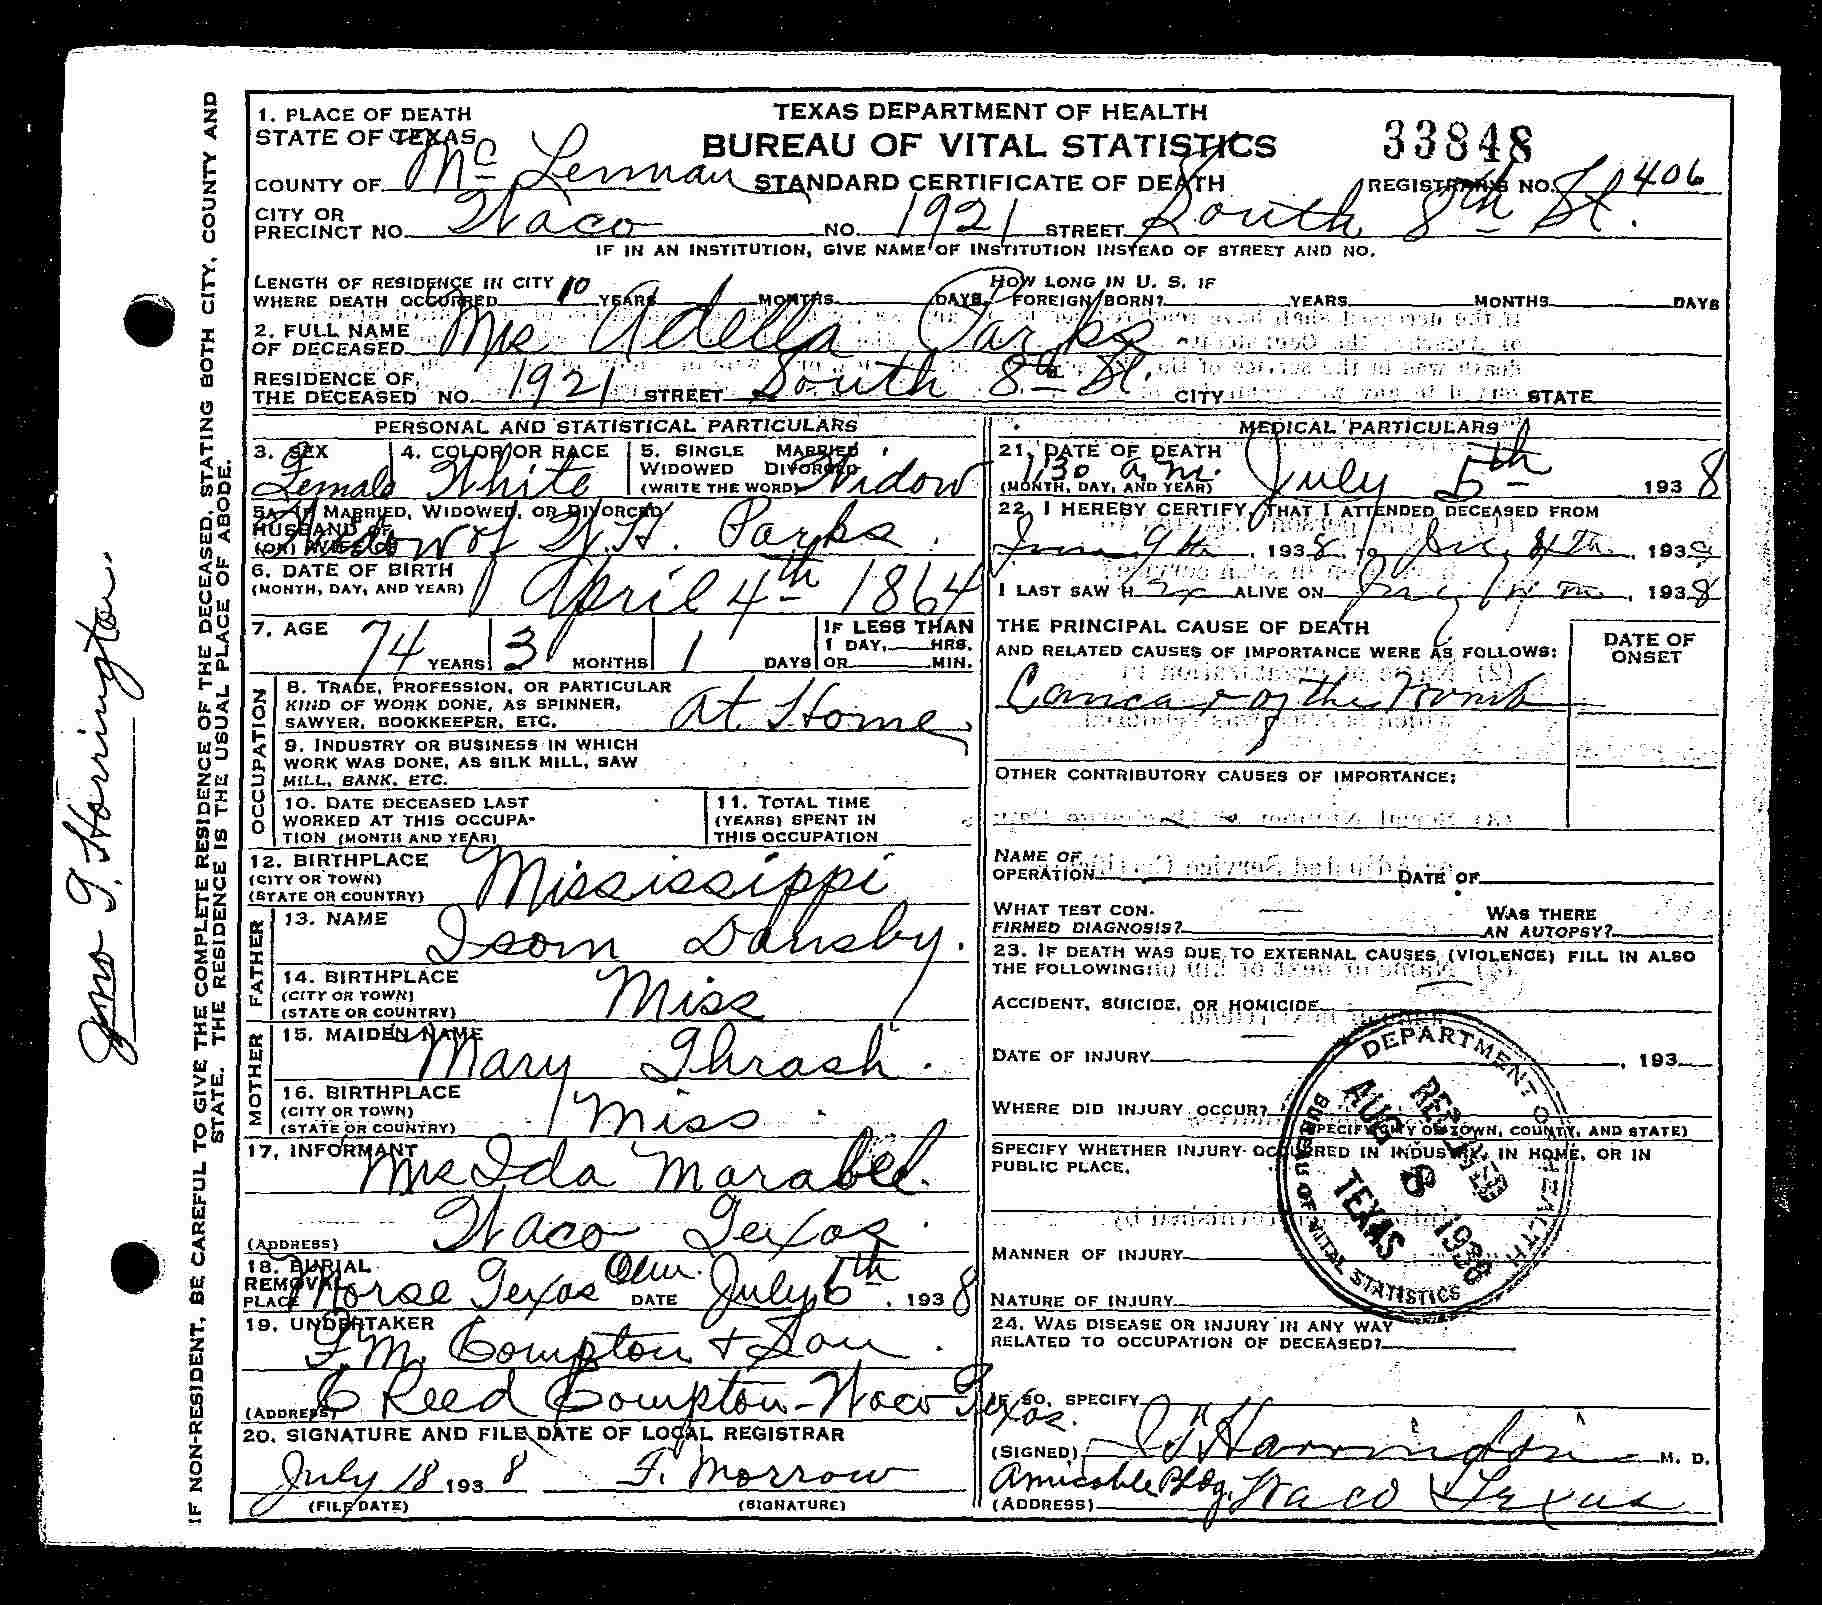 1. PLACE OF DEATH
STATE OF TEXAS
COUNTY OF McLennan
TEXAS DEPARTMENT OF HEALTH
BUREAU OF VITAL STATISTICS
STANDARD CERTIFICATE OF DEATH
33848
REGISTRAR'S NO. 406
CITY OR PRECINCT NO. Waco NO. 1921 STREET South 8th St.
IF IN AN INSTITUTION, GIVE NAME OF INSTITUTION INSTEAD OF STREET AND NO.
LENGTH OF RESIDENCE IN CITY
WHERE DEATH OCCURRED 10 YEARS MONTHS DAYS
HOW LONG IN U. S. IF
FOREIGN BORN? YEARS MONTHS DAYS
2. FULL NAME
OF DECEASED Mrs Adella Parks
RESIDENCE OF
THE DECEASED NO. 1921 STREET South 8th St. CITY STATE
PERSONAL AND STATISTICAL PARTICULARS
3. SEX Female
4. COLOR OR RACE White
5. SINGLE MARRIED
WIDOWED DIVORCED
(WRITE THE WORD) Widow
5A. IF MARRIED, WIDOWED, OR DIVORCED
HUSBAND OF
(OR) WIFE OF Widow of W.H. Parks
6. DATE OF BIRTH
(MONTH, DAY, AND YEAR) April 4th 1864
7. AGE 74 YEARS 3 MONTHS 1 DAYS
IF LESS THAN
1 DAY, HRS.
OR MIN.
OCCUPATION
8. TRADE, PROFESSION, OR PARTICULAR
KIND OF WORK DONE, AS SPINNER,
SAWYER, BOOKKEEPER, ETC. At Home
9. INDUSTRY OR BUSINESS IN WHICH
WORK WAS DONE, AS SILK MILL, SAW
MILL, BANK, ETC.
10. DATE DECEASED LAST
WORKED AT THIS OCCUPA-
TION (MONTH AND YEAR)
11. TOTAL TIME
(YEARS) SPENT IN
THIS OCCUPATION
12. BIRTHPLACE
(CITY OR TOWN)
(STATE OR COUNTRY) Mississippi
FATHER
13. NAME Isom Dansby.
14. BIRTHPLACE
(CITY OR TOWN)
(STATE OR COUNTRY) Miss
MOTHER
15. MAIDEN NAME Mary Thrash.
16. BIRTHPLACE
(CITY OR TOWN)
(STATE OR COUNTRY) Miss
17. INFORMANT Mrs Ida Marabel.
(ADDRESS) Waco Texas.
18. BURIAL
REMOVAL
PLACE Morse Texas Cem. DATE July 6th, 1938
19. UNDERTAKER
F.M. Compton & Son.
(ADDRESS) C Reed Compton - Waco Texas.
20. SIGNATURE AND FILE DATE OF LOCAL REGISTRAR
July 18 1938 F. Morrow
(FILE DATE) (SIGNATURE)
MEDICAL PARTICULARS
21. DATE OF DEATH
1:30 a.m.
(MONTH, DAY, AND YEAR) July 5th 1938
22. I HEREBY CERTIFY, THAT I ATTENDED DECEASED FROM
June 9th, 1938 TO July 4th, 193
I LAST SAW HER ALIVE ON July 4th, 1938
THE PRINCIPAL CAUSE OF DEATH
AND RELATED CAUSES OF IMPORTANCE WERE AS FOLLOWS:
DATE OF
ONSET
Cancer of the Womb
OTHER CONTRIBUTORY CAUSES OF IMPORTANCE:
NAME OF
OPERATION DATE OF
WHAT TEST CON-
FIRMED DIAGNOSIS?
WAS THERE
AN AUTOPSY?
23. IF DEATH WAS DUE TO EXTERNAL CAUSES (VIOLENCE) FILL IN ALSO
THE FOLLOWING:
ACCIDENT, SUICIDE, OR HOMICIDE
DATE OF INJURY , 193
WHERE DID INJURY OCCUR?
(SPECIFY CITY OR TOWN, COUNTY, AND STATE)
SPECIFY WHETHER INJURY OCCURRED IN INDUSTRY, IN HOME, OR IN
PUBLIC PLACE.
MANNER OF INJURY
NATURE OF INJURY
24. WAS DISEASE OR INJURY IN ANY WAY
RELATED TO OCCUPATION OF DECEASED?
IF SO, SPECIFY
(SIGNED) Harrington M. D.
(ADDRESS) Amicable Bldg. Waco Texas
DEPARTMENT OF HEALTH
RECEIVED
AUG 8 1938
TEXAS
BUREAU OF VITAL STATISTICS
IF NON-RESIDENT, BE CAREFUL TO GIVE THE COMPLETE RESIDENCE OF THE DECEASED, STATING BOTH CITY, COUNTY AND
STATE. THE RESIDENCE IS THE USUAL PLACE OF ABODE.
Jno T. Harrington